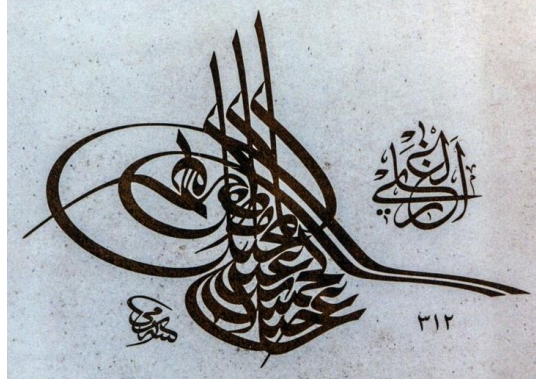 عبد الحميد خان بن عبد المجيد المظفر دائما
الغازي
٣١٢